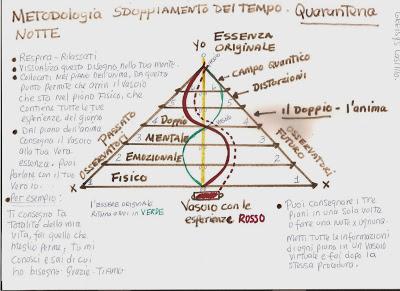 METODOLOGIA SDOPPIAMENTO DEL TEMPO. QUARANTENA
NOTTE
ESSENZA
ORIGINALE
Yo
• Respira - Rilassati
• Visualizza questo disegno nella tua mente.
• Collocati nel piano dell'anima, da questo
punto permete che arrivi il Vasoio
che sta nel piano fisico, che
contiene tutte le tue
esperienze del giorno
• Dal piano dell'anima
consegna il vasoio
alla tua vera
essenza. Puoi
parlare con il tuo
Vero io.
• Per esempio:
Ti consegno la
Totalità della mia
vita, fai quello che
meglio pensi, tu mi
conosci e sai di cui
ho bisogno. Grazie. Ti amo
CAMPO QUANTICO
DISTORZIONI
Il Doppio - l'anima
PASSATO
OSSERVATORE
OSSERVATORI
FUTURO
4 Doppio 4
3 MENTALE 3
2 EMOZIONALE 2
1 FISICO 1
X
X
L'ESSERE ORIGINALE
Ritorna a noi in VERDE
VASOIO con le
esperienze ROSSO
• Puoi consegnare i tre
piani in una sola volta
o fare una notte x ognuna.
Metti tutte le informazioni
di ogni piano in un vasoio
virtuale e fai dopo la
stessa procedura.